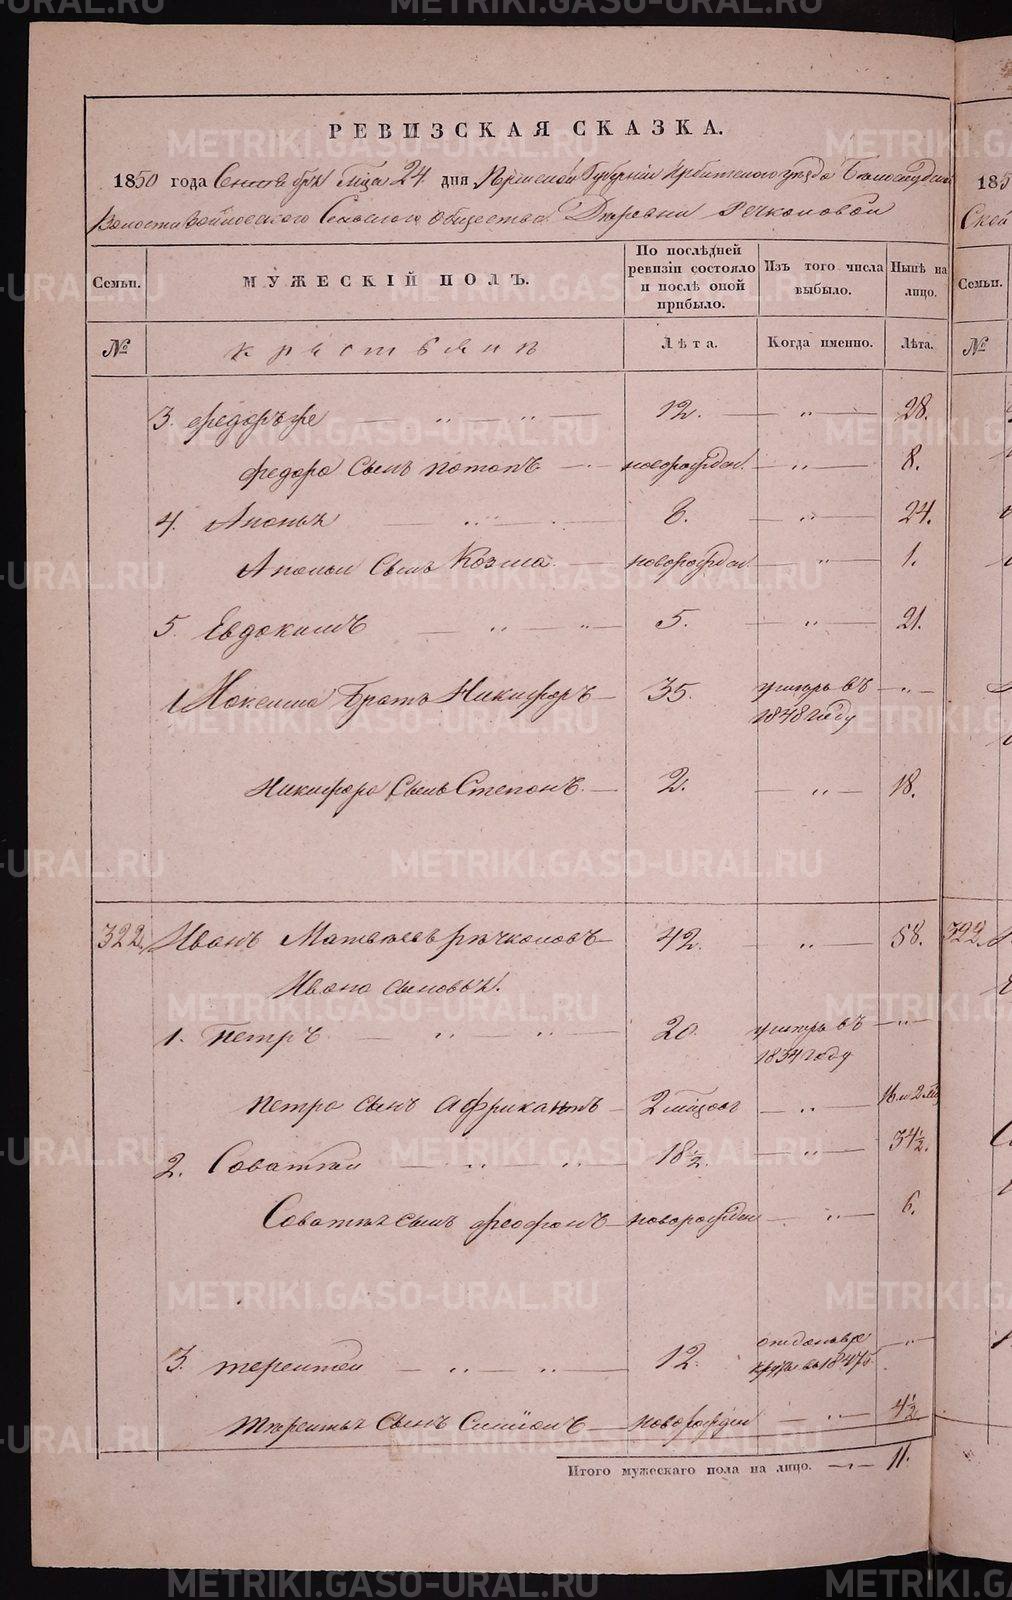 РЕВИЗСКАЯ СКАЗКА.
1850 года Сентября м̃ца 24 дня Пермской Губерніи Ирбитского уезда
Волости Сельского общества Деревни Речкаловой
Семьи.
МУЖЕСКІЙ ПОЛЪ.
По послѣдней ревизіи состояло и послѣ оной прибыло.
Изъ того числа выбыло.
Нынѣ на лицо.
№
крестьяне
Лѣта.
Когда именно.
Лѣта.
3. Федоръ же — „ — „ — 12. — „ — 28.
Федора сынъ Потапъ — новорожден. — „ — 8.
4. — „ — 8. — „ — 24.
сынъ Козма — новорожден — „ — 1.
5. Евдокимъ — „ — „ — 5. — „ — 21.
братъ Никифоръ — 35. умеръ въ — „ —
1848 году
Никифора сынъ Степанъ. — 2. — „ — 18.
322. Иванъ Матвеевъ Речкаловъ — 42. — „ — 58.
Ивана сыновья.
1. Петръ — „ — „ — 20. умеръ въ — „ —
1834 году
Петра сынъ Африканъ — — „ —
2. Саватей — „ — „ — 18½. — „ — 34½.
Саватея сынъ Феофанъ — новорожден — „ — 6.
3. Терентей — „ — „ — 12. — „ —
Терентья сынъ Симионъ — новорожден — „ — 4½
Итого мужескаго пола на лицо. — „ — 11.
185
Семьи.
№
322.
METRIKI.GASO-URAL.RU